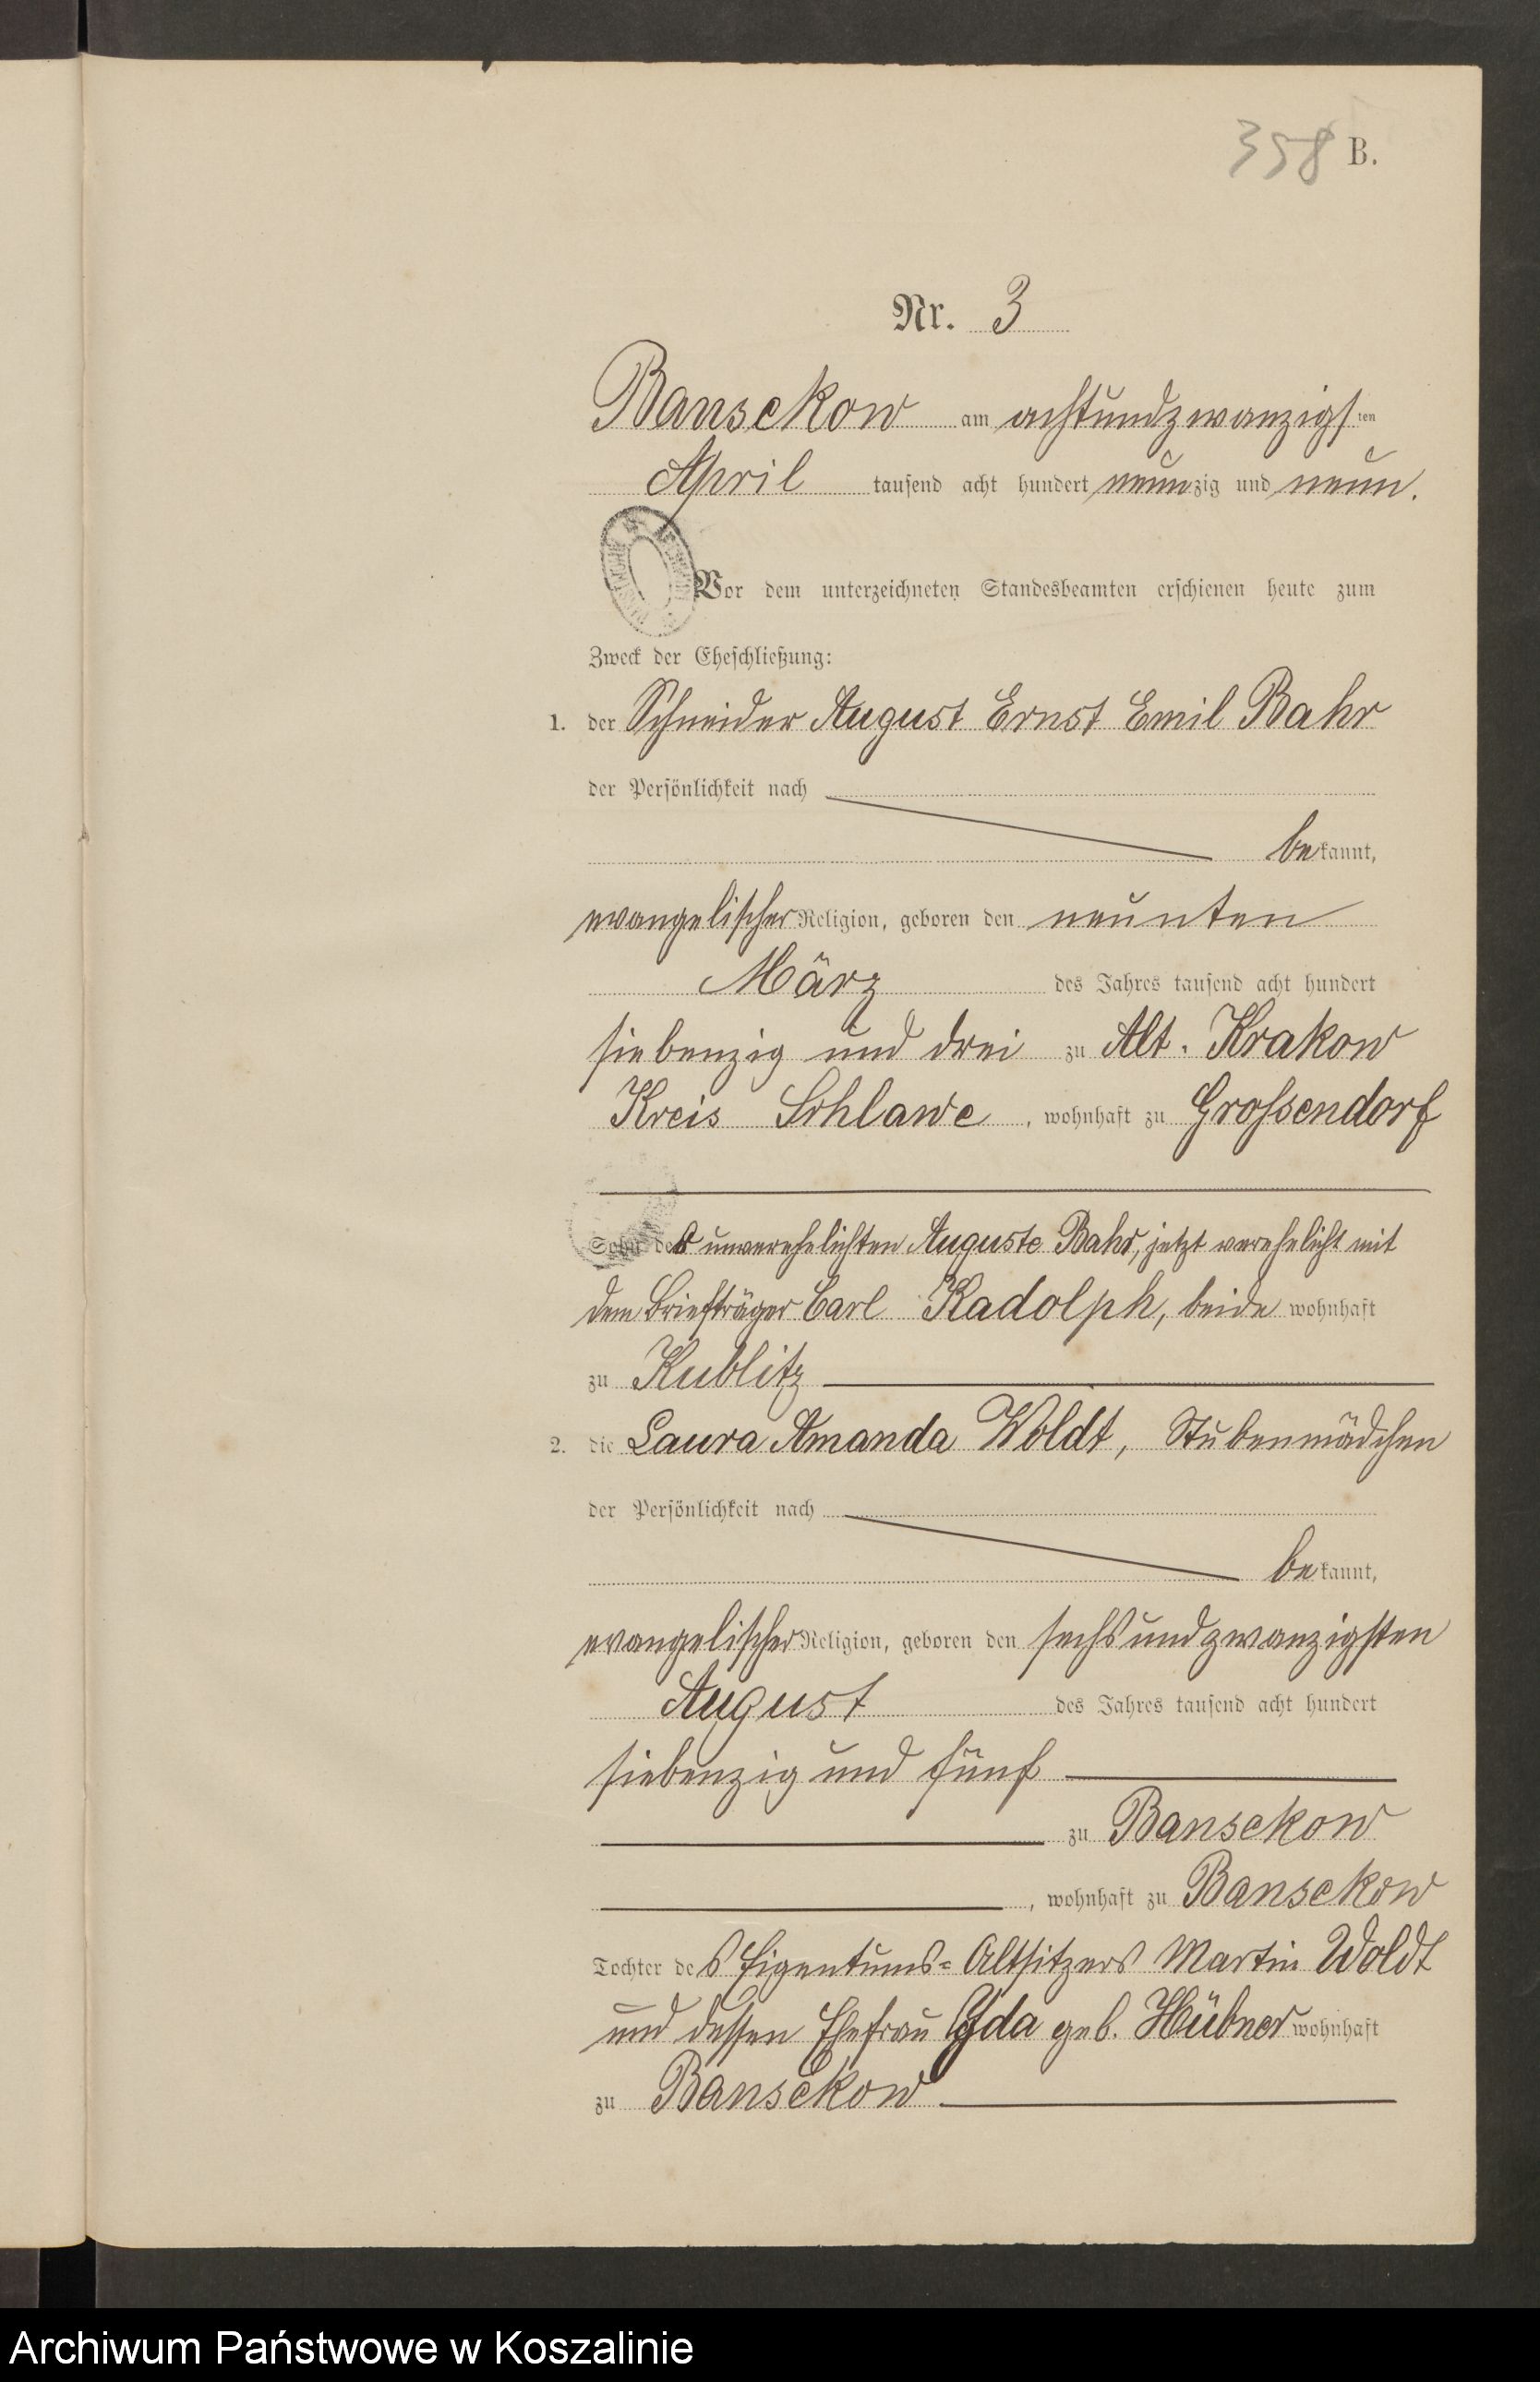 358 B.
Nr. 3
Bansekow am achtundzwanzigsten
April tausend acht hundert neunzig und neun.
Vor dem unterzeichneten Standesbeamten erschienen heute zum
Zweck der Eheschließung:
1. der Schneider August Ernst Emil Bahr
der Persönlichkeit nach
bekannt,
evangelischer Religion, geboren den neunten
März des Jahres tausend acht hundert
siebenzig und drei zu Alt-Krakow
Kreis Schlawe, wohnhaft zu Grossendorf
Sohn der unverehelichten Auguste Bahr, jetzt verehelicht mit
dem Briefträger Carl Radolph, beide wohnhaft
zu Kublitz
2. die Laura Amanda Woldt, Stubenmädchen
der Persönlichkeit nach
bekannt,
evangelischer Religion, geboren den sechsundzwanzigsten
August des Jahres tausend acht hundert
siebenzig und fünf
zu Bansekow
, wohnhaft zu Bansekow
Tochter des Eigentums-Altsitzers Martin Woldt
und dessen Ehefrau Ida geb. Hübner wohnhaft
zu Bansekow
Archiwum Państwowe w Koszalinie